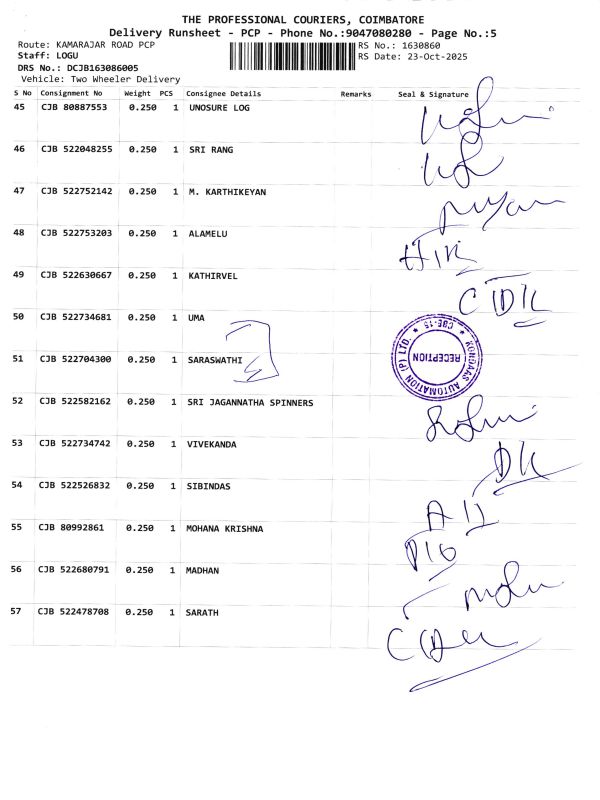 THE PROFESSIONAL COURIERS, COIMBATORE
Delivery Runsheet - PCP - Phone No.:9047080280 - Page No.:5
Route: KAMARAJAR ROAD PCP RS No.: 1630860
Staff: LOGU RS Date: 23-Oct-2025
DRS No.: DCJB163086005
Vehicle: Two Wheeler Delivery
S No Consignment No Weight PCS Consignee Details Remarks Seal & Signature
45 CJB 80887553 0.250 1 UNOSURE LOG
46 CJB 522048255 0.250 1 SRI RANG
47 CJB 522752142 0.250 1 M. KARTHIKEYAN
48 CJB 522753203 0.250 1 ALAMELU
49 CJB 522630667 0.250 1 KATHIRVEL
50 CJB 522734681 0.250 1 UMA
51 CJB 522704300 0.250 1 SARASWATHI
KONDAAS AUTOMATION (P) LTD. * CBE-15 *
RECEPTION
52 CJB 522582162 0.250 1 SRI JAGANNATHA SPINNERS
53 CJB 522734742 0.250 1 VIVEKANDA
54 CJB 522526832 0.250 1 SIBINDAS
55 CJB 80992861 0.250 1 MOHANA KRISHNA
56 CJB 522680791 0.250 1 MADHAN
57 CJB 522478708 0.250 1 SARATH